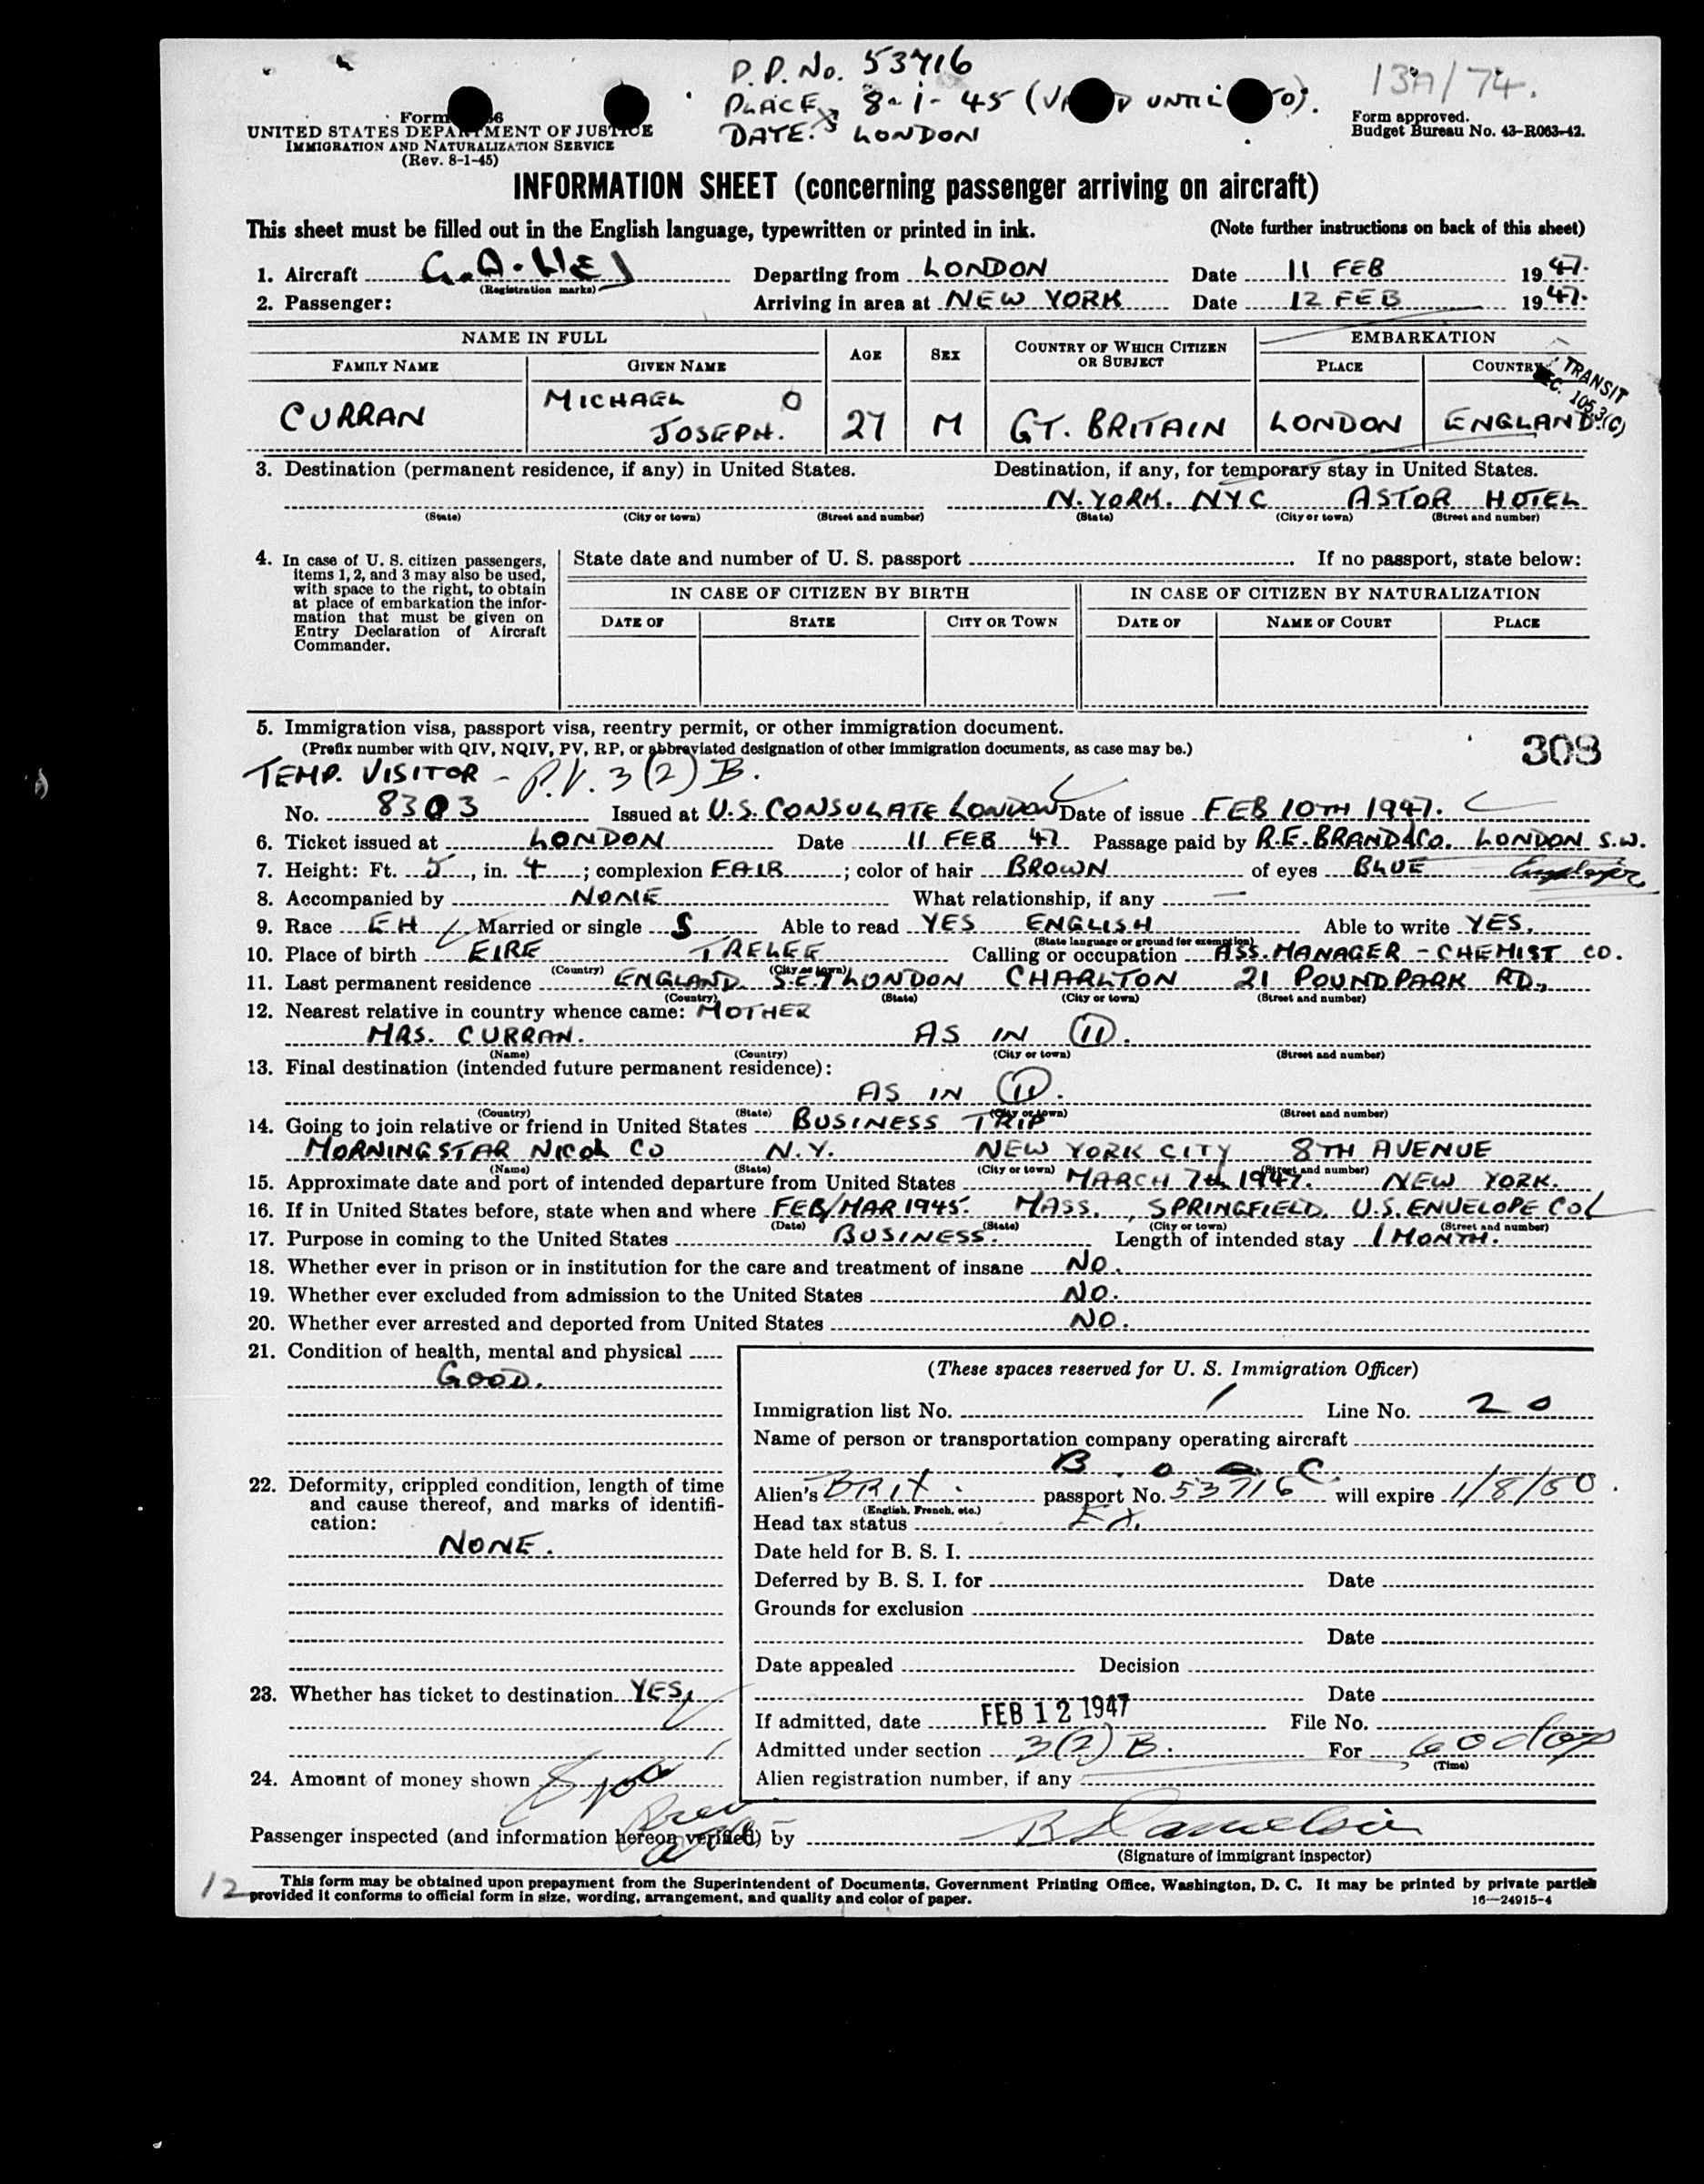 P.P. No. 53716
PLACE & 8-1-45 ( UNTIL
DATE: LONDON
13A/74.
Form
UNITED STATES DEPARTMENT OF JUSTICE
IMMIGRATION AND NATURALIZATION SERVICE
(Rev. 8-1-45)
Form approved.
Budget Bureau No. 43-R063-42.
INFORMATION SHEET (concerning passenger arriving on aircraft)
This sheet must be filled out in the English language, typewritten or printed in ink. (Note further instructions on back of this sheet)
1. Aircraft Departing from LONDON Date 11 FEB 1947.
(Registration marks)
2. Passenger: Arriving in area at NEW YORK Date 12 FEB 1947.
NAME IN FULL AGE SEX COUNTRY OF WHICH CITIZEN OR SUBJECT EMBARKATION
FAMILY NAME GIVEN NAME PLACE COUNTRY
TRANSIT
SEC. 105.3(C)
CURRAN MICHAEL O JOSEPH. 27 M GT. BRITAIN LONDON ENGLAND.
3. Destination (permanent residence, if any) in United States. Destination, if any, for temporary stay in United States.
N. YORK. NYC ASTOR HOTEL
(State) (City or town) (Street and number) (State) (City or town) (Street and number)
4. In case of U. S. citizen passengers, items 1, 2, and 3 may also be used, with space to the right, to obtain at place of embarkation the information that must be given on Entry Declaration of Aircraft Commander.
State date and number of U. S. passport . If no passport, state below:
IN CASE OF CITIZEN BY BIRTH IN CASE OF CITIZEN BY NATURALIZATION
DATE OF STATE CITY OR TOWN DATE OF NAME OF COURT PLACE
5. Immigration visa, passport visa, reentry permit, or other immigration document.
(Prefix number with QIV, NQIV, PV, RP, or abbreviated designation of other immigration documents, as case may be.)
308
TEMP. VISITOR - P.V. 3(2) B.
No. 8303 Issued at U.S. CONSULATE LONDON Date of issue FEB 10TH 1947.
6. Ticket issued at LONDON Date 11 FEB 47 Passage paid by R.E. BRAND & CO. LONDON S.W.
7. Height: Ft. 5, in. 4; complexion FAIR; color of hair BROWN of eyes BLUE Employer
8. Accompanied by NONE What relationship, if any —
9. Race EH Married or single S Able to read YES ENGLISH Able to write YES.
(State language or ground for exemption)
10. Place of birth EIRE TRELEE Calling or occupation ASS. MANAGER - CHEMIST CO.
(Country) (City or town)
11. Last permanent residence ENGLAND S.E.7 LONDON CHARLTON 21 POUNDPARK RD.,
(Country) (State) (City or town) (Street and number)
12. Nearest relative in country whence came: MOTHER
MRS. CURRAN. AS IN (11).
(Name) (Country) (City or town) (Street and number)
13. Final destination (intended future permanent residence):
AS IN (11).
(Country) (State) (City or town) (Street and number)
14. Going to join relative or friend in United States BUSINESS TRIP
MORNINGSTAR NICOL CO N.Y. NEW YORK CITY 8TH AVENUE
(Name) (State) (City or town) (Street and number)
15. Approximate date and port of intended departure from United States MARCH 7th 1947. NEW YORK.
16. If in United States before, state when and where FEB/MAR 1945. MASS., SPRINGFIELD. U.S. ENVELOPE CO
(Date) (State) (City or town) (Street and number)
17. Purpose in coming to the United States BUSINESS. Length of intended stay 1 MONTH.
18. Whether ever in prison or in institution for the care and treatment of insane NO.
19. Whether ever excluded from admission to the United States NO.
20. Whether ever arrested and deported from United States NO.
21. Condition of health, mental and physical
GOOD.
22. Deformity, crippled condition, length of time and cause thereof, and marks of identification:
NONE.
23. Whether has ticket to destination YES
24. Amount of money shown
(These spaces reserved for U. S. Immigration Officer)
Immigration list No. 1 Line No. 20
Name of person or transportation company operating aircraft
B.O.A.C.
Alien's BRIT. passport No. 53716 will expire 1/8/50.
(English, French, etc.)
Head tax status EX.
Date held for B. S. I.
Deferred by B. S. I. for Date
Grounds for exclusion
Date
Date appealed Decision
Date
If admitted, date FEB 12 1947 File No.
Admitted under section 3(2) B. For 60 days
(Time)
Alien registration number, if any
Passenger inspected (and information hereon verified) by
(Signature of immigrant inspector)
12
This form may be obtained upon prepayment from the Superintendent of Documents, Government Printing Office, Washington, D. C. It may be printed by private parties
provided it conforms to official form in size, wording, arrangement, and quality and color of paper. 16—24915-4